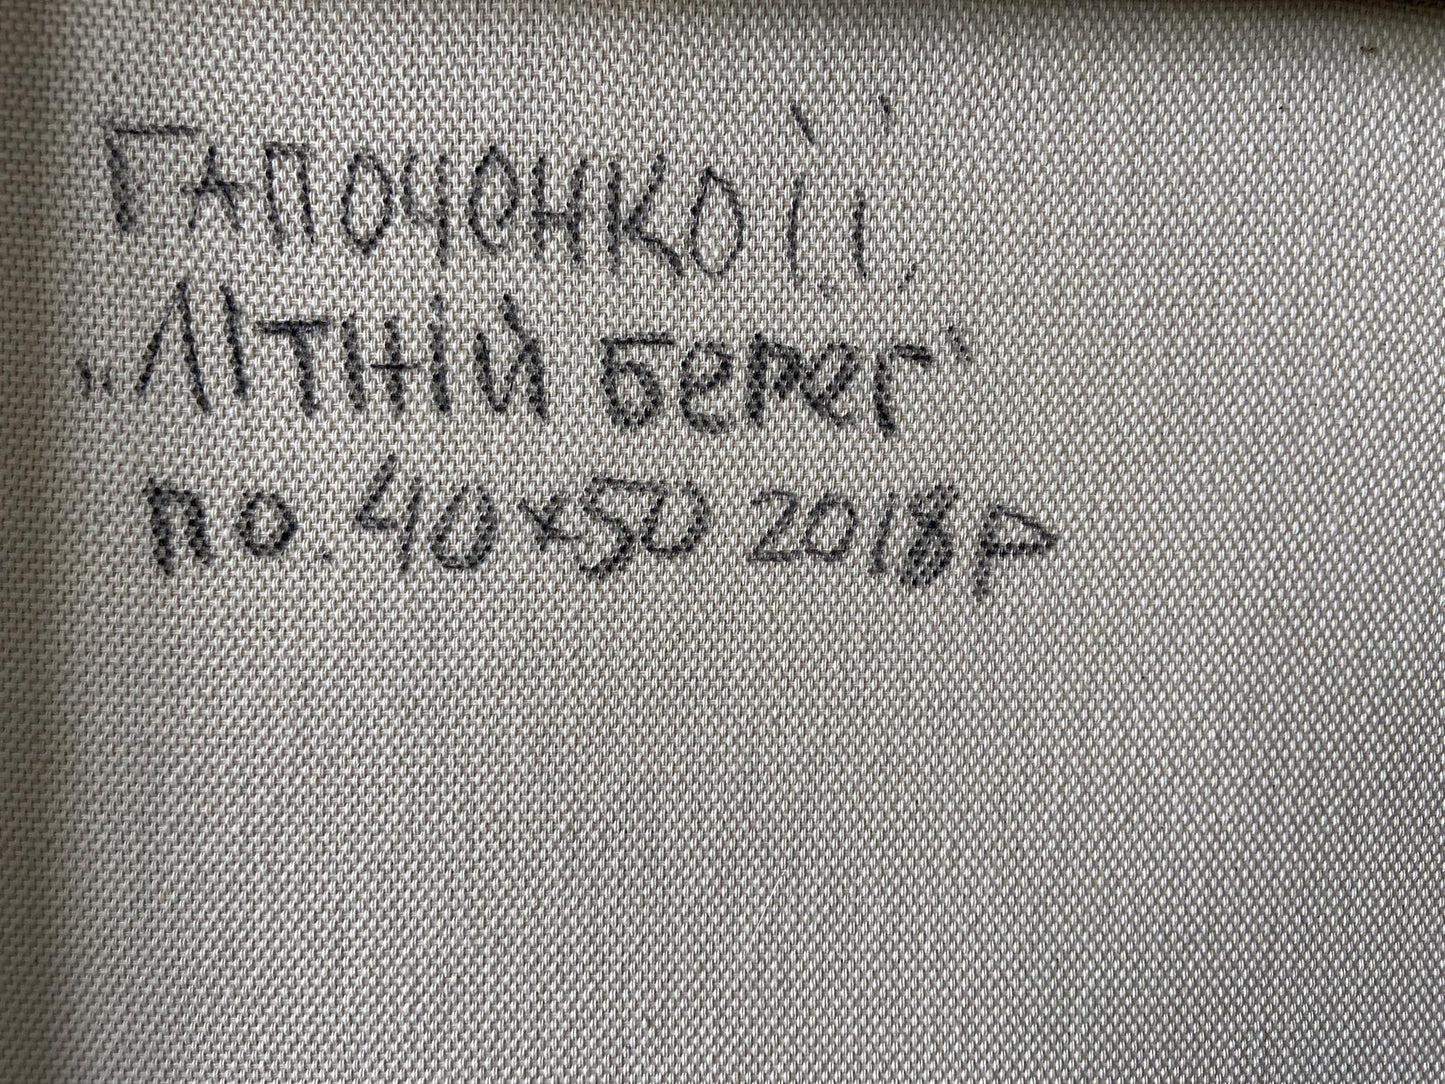 Гапоченко І.І.
„Літній берег"
по. 40х50 2018р